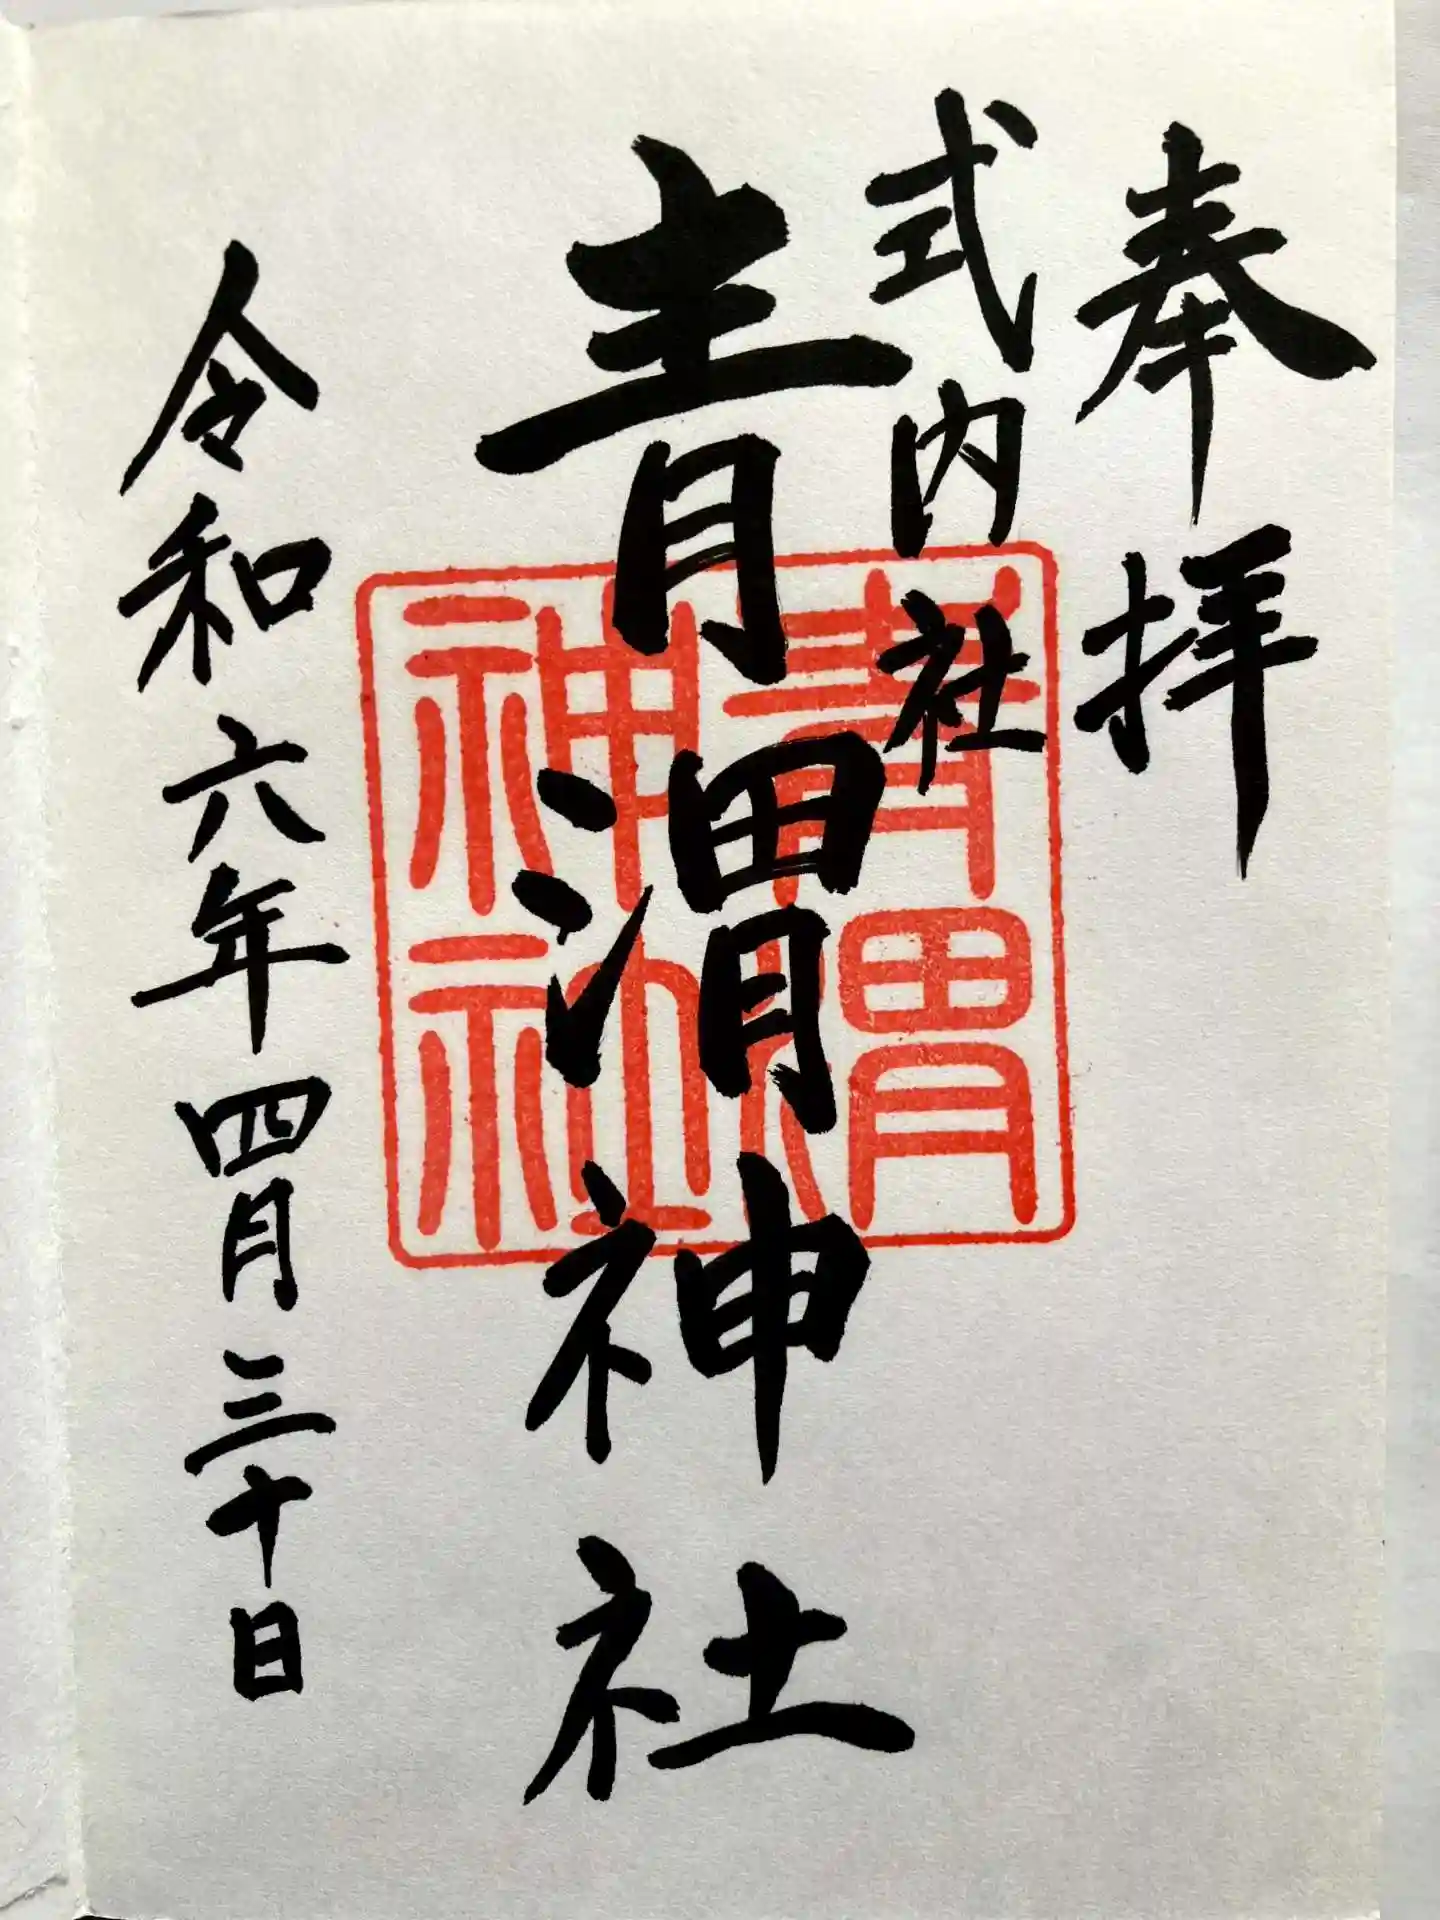 奉拝
式内社
青渭神社
令和六年四月三十日
青渭神社